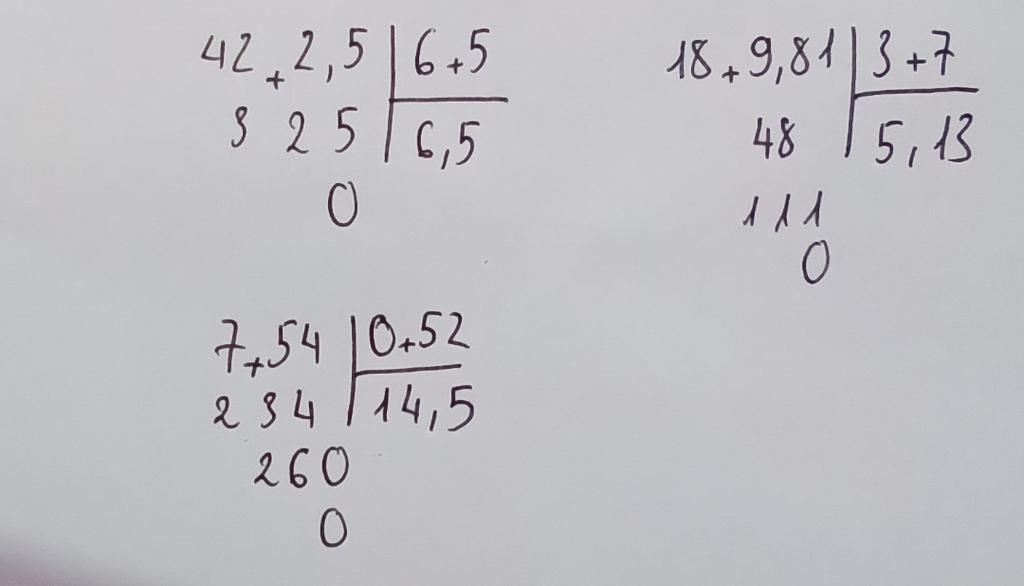 42+2,5 | 6+5
3 2 5 | 6,5
0
18+9,81 | 3+7
48 | 5,13
111
0
7+54 | 0+52
234 | 14,5
260
0